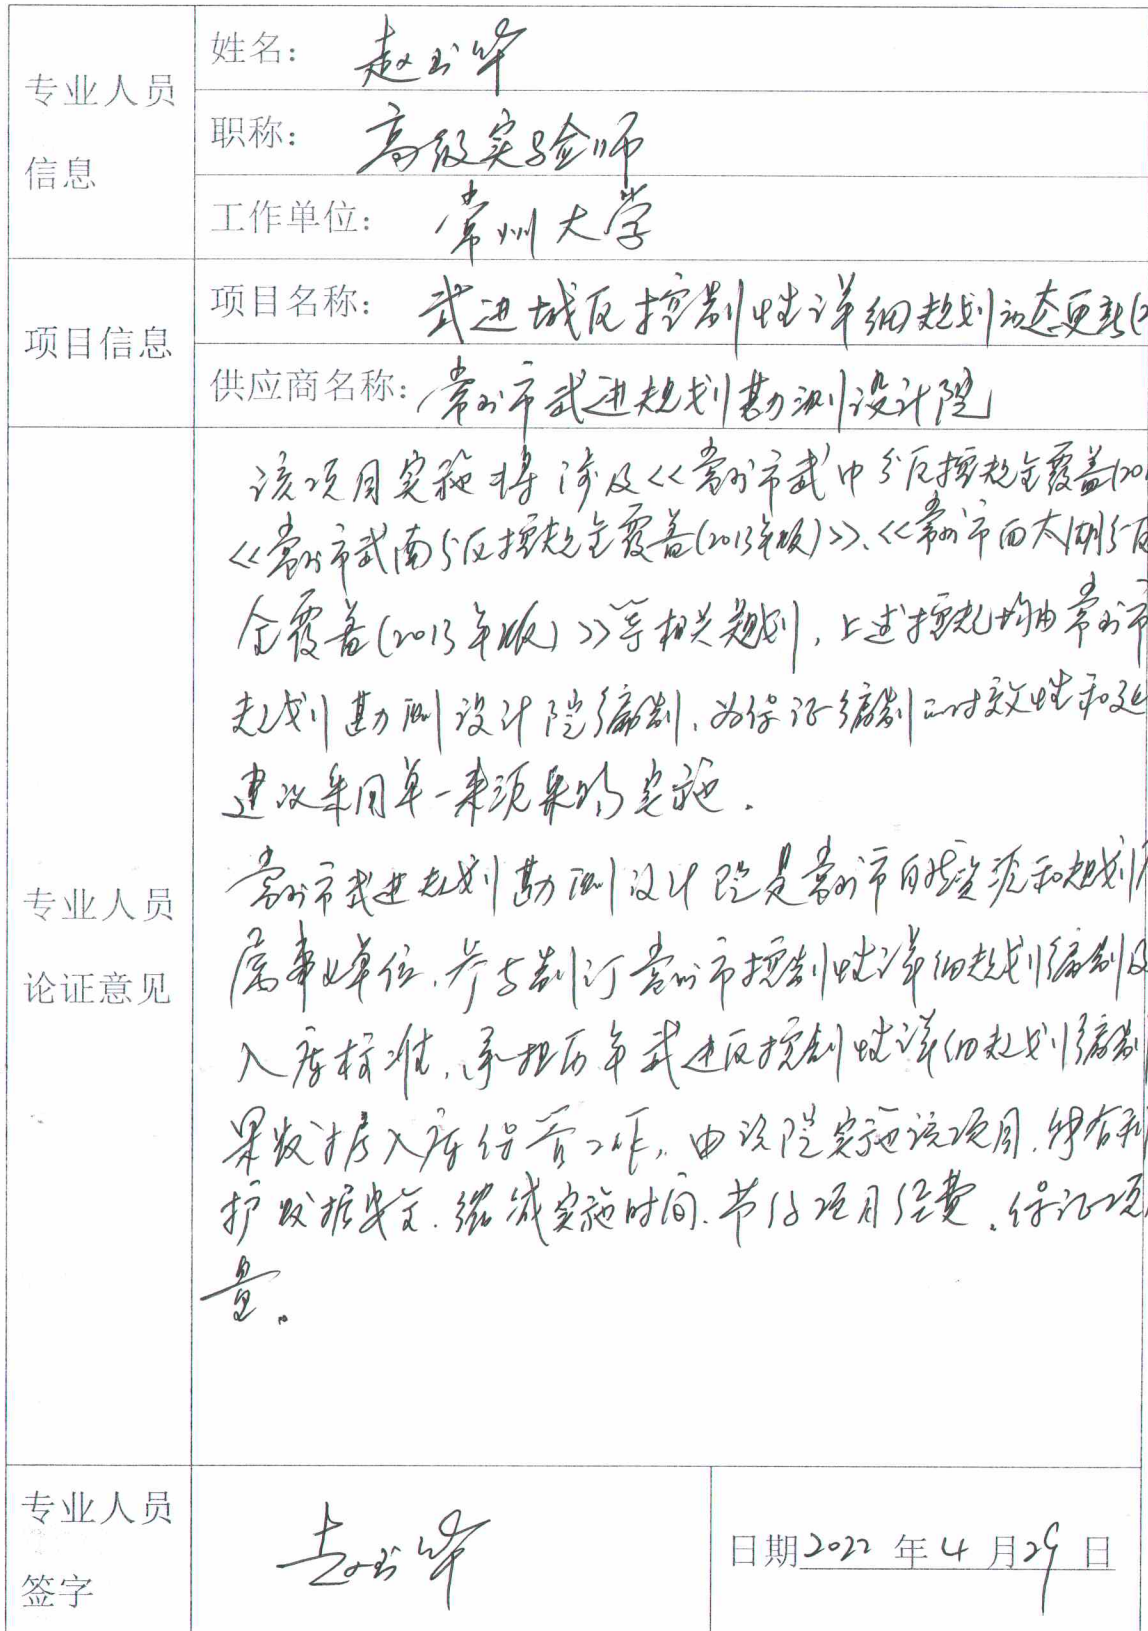 专业人员
信息
姓名：赵玉华
职称：高级实验师
工作单位：常州大学
项目信息
项目名称：武进城区控制性详细规划动态更新(2
供应商名称：常州市武进规划勘测设计院
专业人员
论证意见
该项目实施将涉及《常州市武中分区控规全覆盖(201
《常州市武南分区控规全覆盖(2013年版)》、《常州市西太湖分区
全覆盖(2013年版)》等相关规划，上述控规均由常州市
规划勘测设计院编制，为保证编制的时效性和延
建议采用单一来源采购实施．
常州市武进规划勘测设计院是常州市自然资源和规划局
属事业单位，参与制订常州市控制性详细规划编制及
入库标准，承担历年武进区控制性详细规划编制
果数据入库保管工作，由该院实施该项目，能有利
护数据安全、缩减实施时间、节约项目经费、保证项
量。
专业人员
签字
赵玉华
日期2022年4月29日